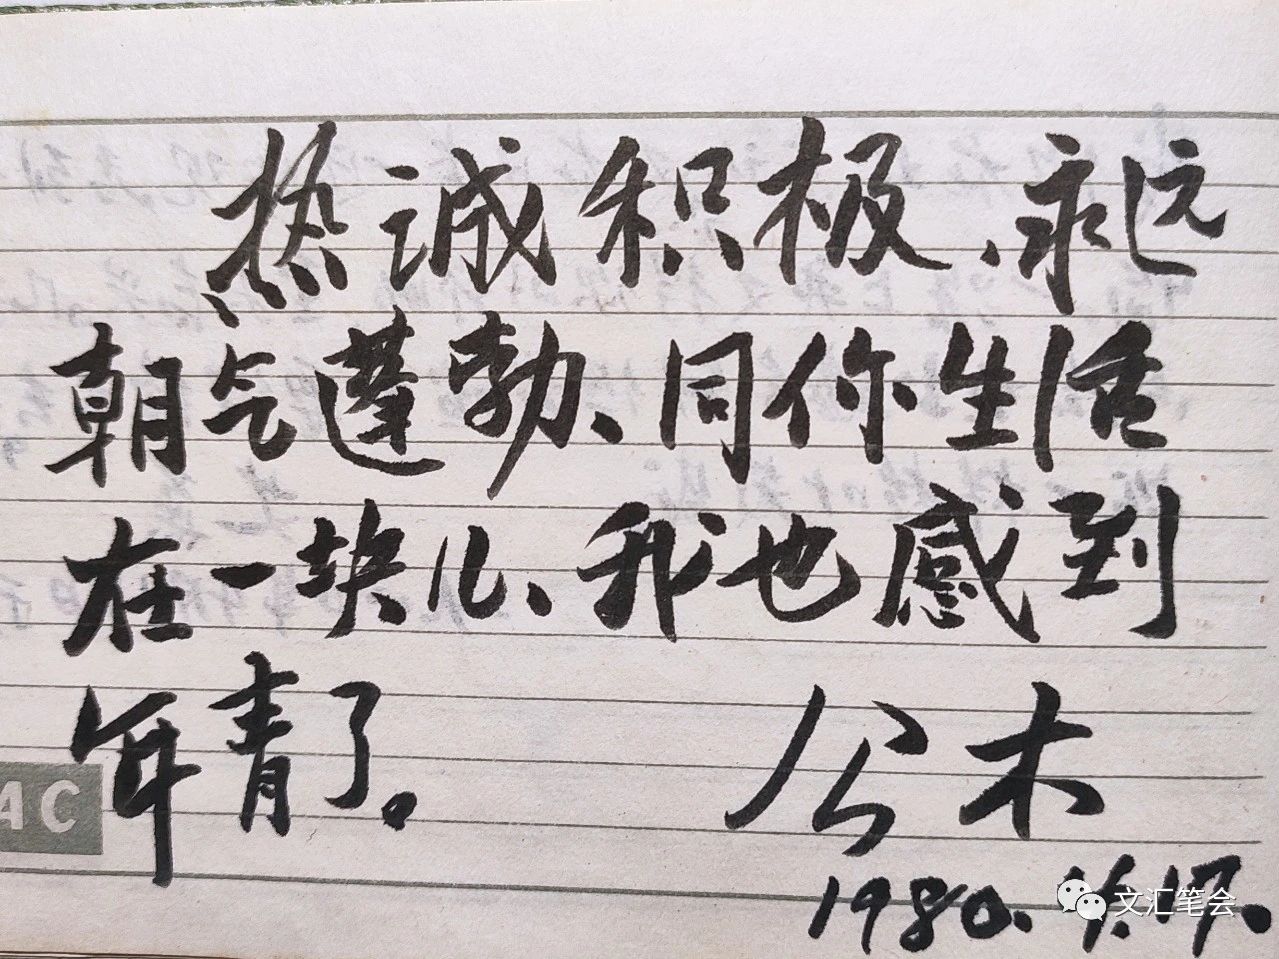 热诚积极、永远
朝气蓬勃、同你生活
在一块儿、我也感到
年青了。
公木
1980.
17.
AC
文汇笔会